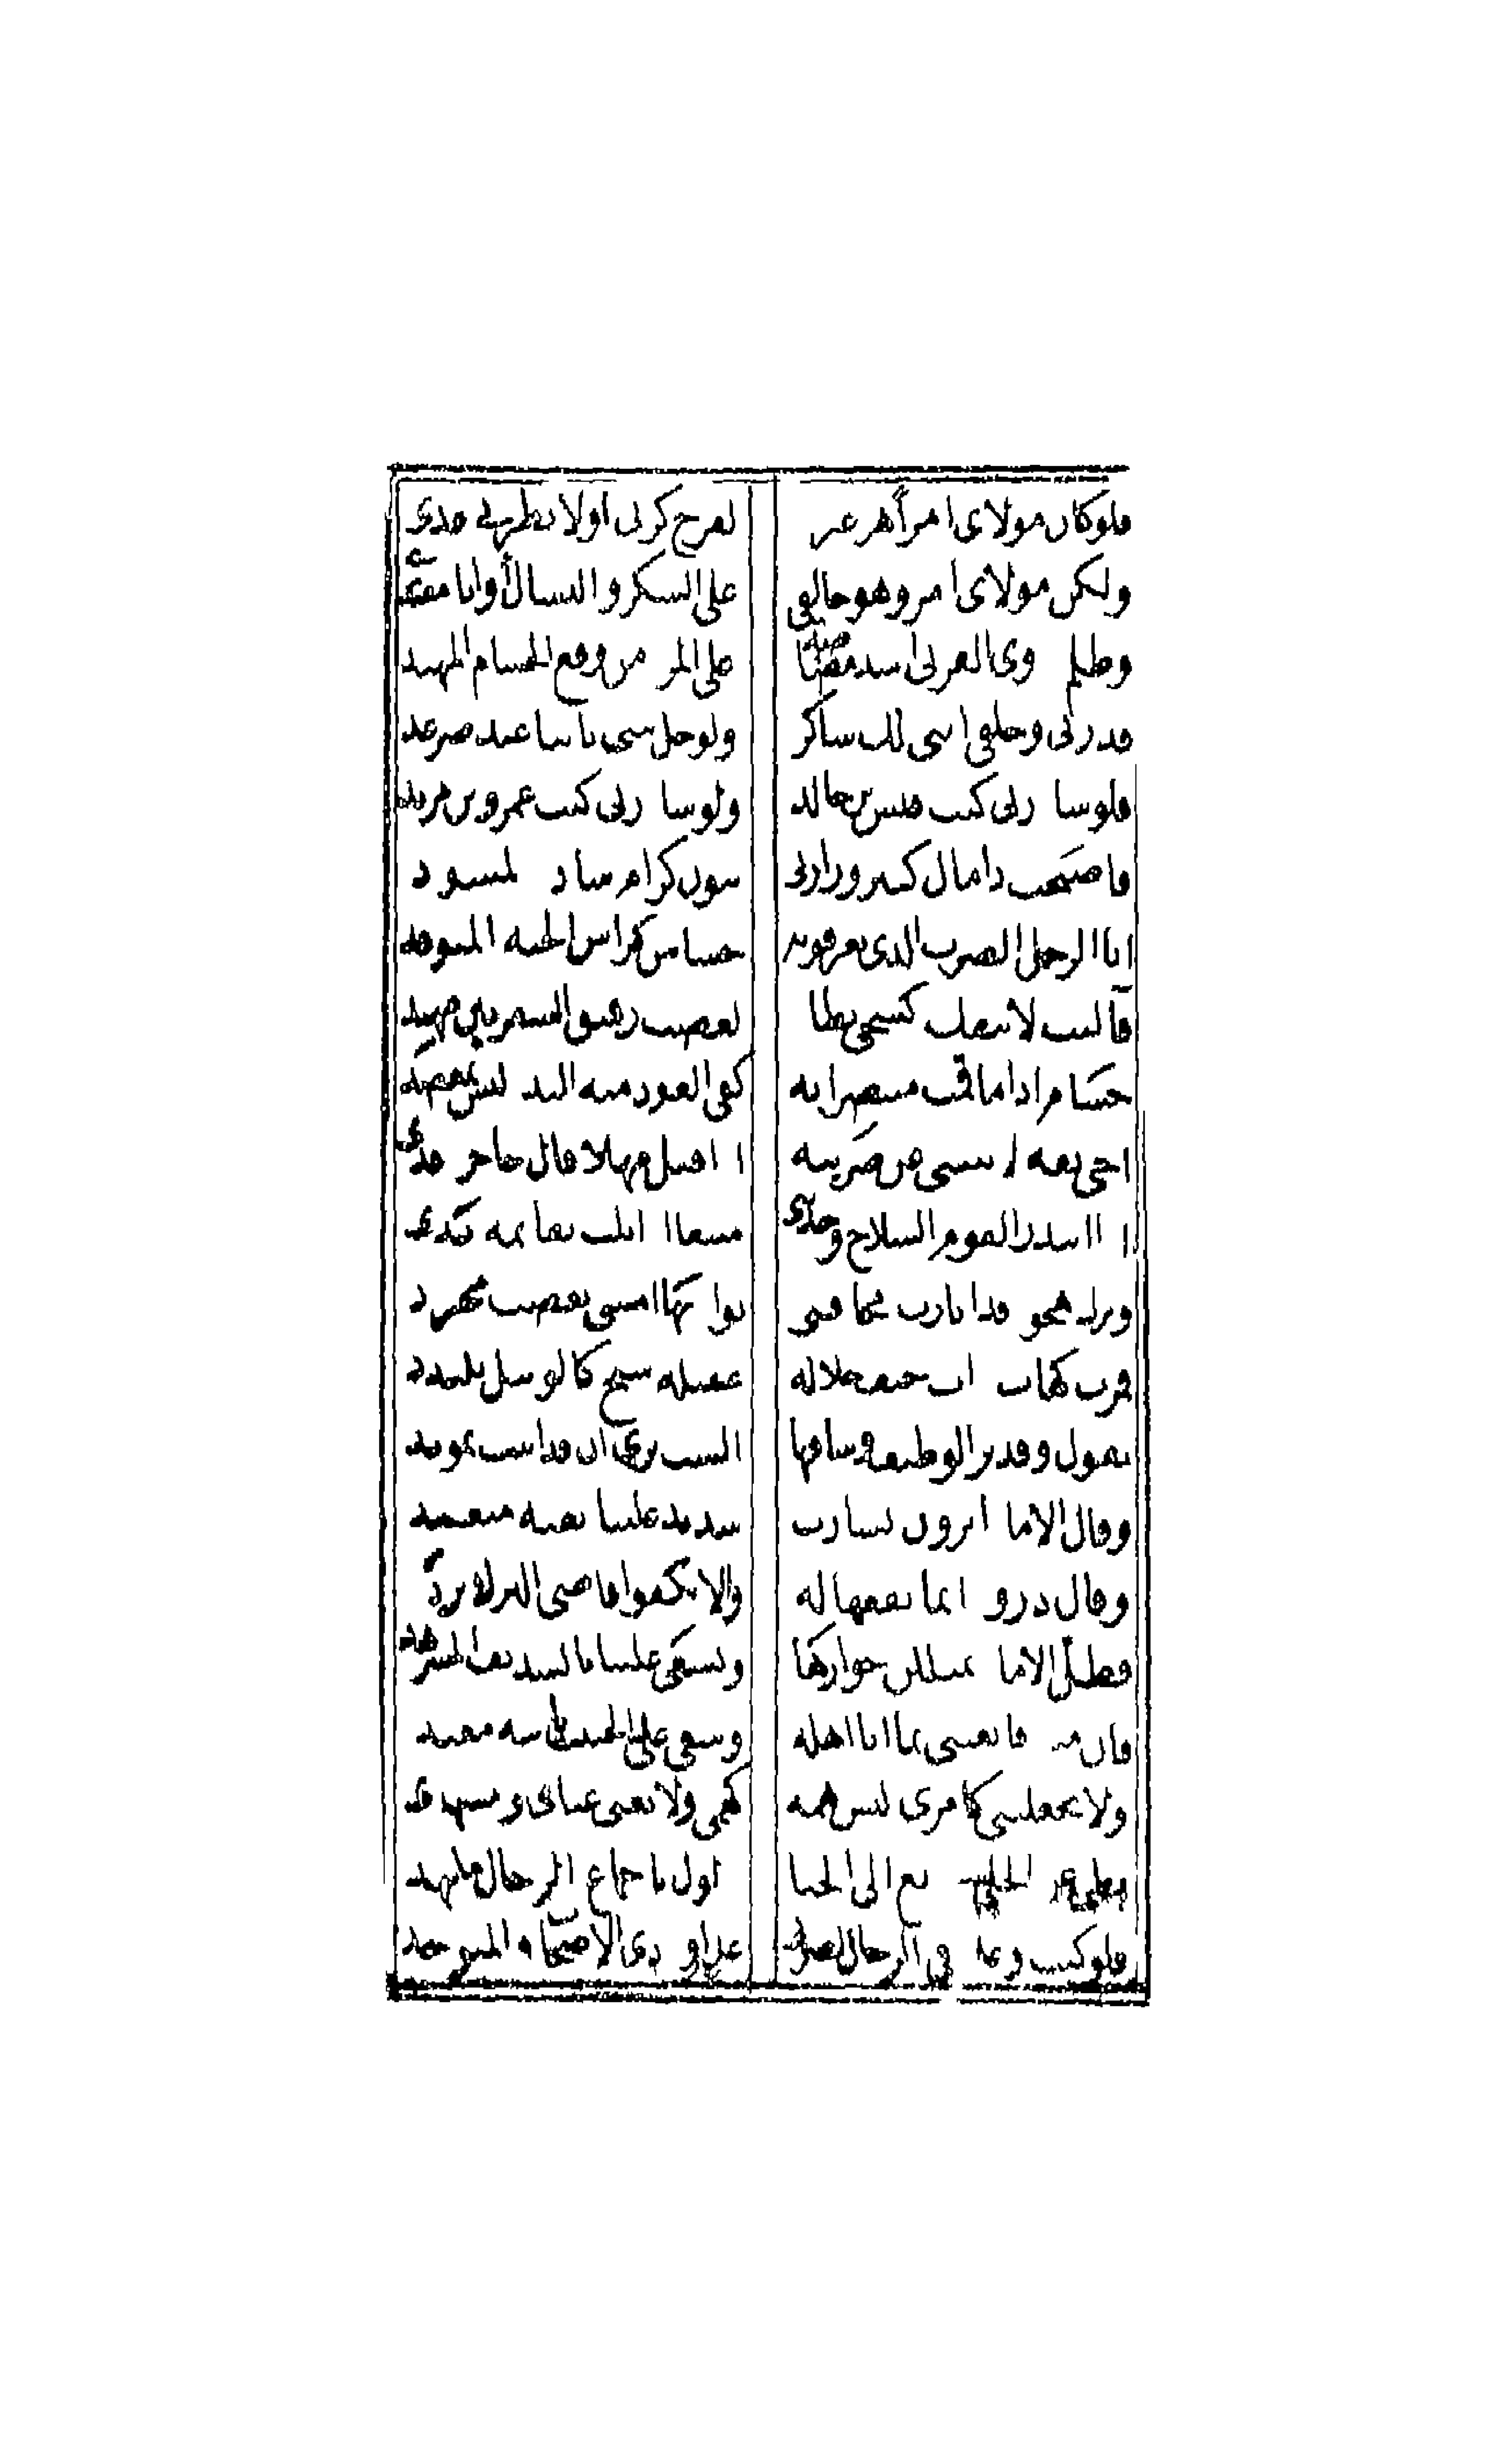 فلو كان مولاي امرأ هو غيره لفرج كربي او لانظرني غدي
ولكن مولاي امرؤ هو خانقي على الشكر والتسآل أو انا مفتدي
وظلم ذوى القربى اشد مضاضة على المرء من وقع الحسام المهند
فذرني وخلقي انني لك شاكر ولو حل بيتي نائيا عند ضرغد
فلو شا ربي كنت قيس بن خالد ولو شا ربي كنت عمرو بن مرثد
فاصبحت ذا مال كثير وزارني بنون كرام سادة لمسود
انا الرجل الضرب الذي تعرفونه خشاش كراس الحية المتوقد
فآليت لا ينفك كشحي بطانة لعضب رقيق الشفرتين مهند
حسام اذا ما قمت منتصرا به كفى العود منه البدء ليس بمعضد
اخي ثقة لا ينثني عن ضريبة اذا قيل مهلا قال حاجزه قدي
اذا ابتدر القوم السلاح وجدتني منيعا اذا ابتلت بقائمه يدي
وبرك هجود قد اثارت مخافتي بواديها امشي بعضب مجرد
فمرت كهاة ذات خيف جلالة عقيلة شيخ كالوبيل يلندد
يقول وقد تر الوظيف وساقها الست ترى ان قد اتيت بمويد
وقال الا ماذا ترون بشارب شديد علينا بغيه متعمد
وقال ذروه انما نفعها له والا تكفوا قاصي البرك يزدد
فظل الاما يمتللن حوارها ويسعى علينا بالسديف المسرهد
فان مت فانعيني بما انا اهله وشقي علي الجيب يا ابنة معبد
ولا تجعليني كامرئ ليس همه كهمي ولا يغني غنائي ومشهدي
بطيء عن الجلى سريع الى الخنا ذلول باجماع الرجال ملهد
فلو كنت وغلا في الرجال لضرني عداوة ذي الاصحاب والمتوحد